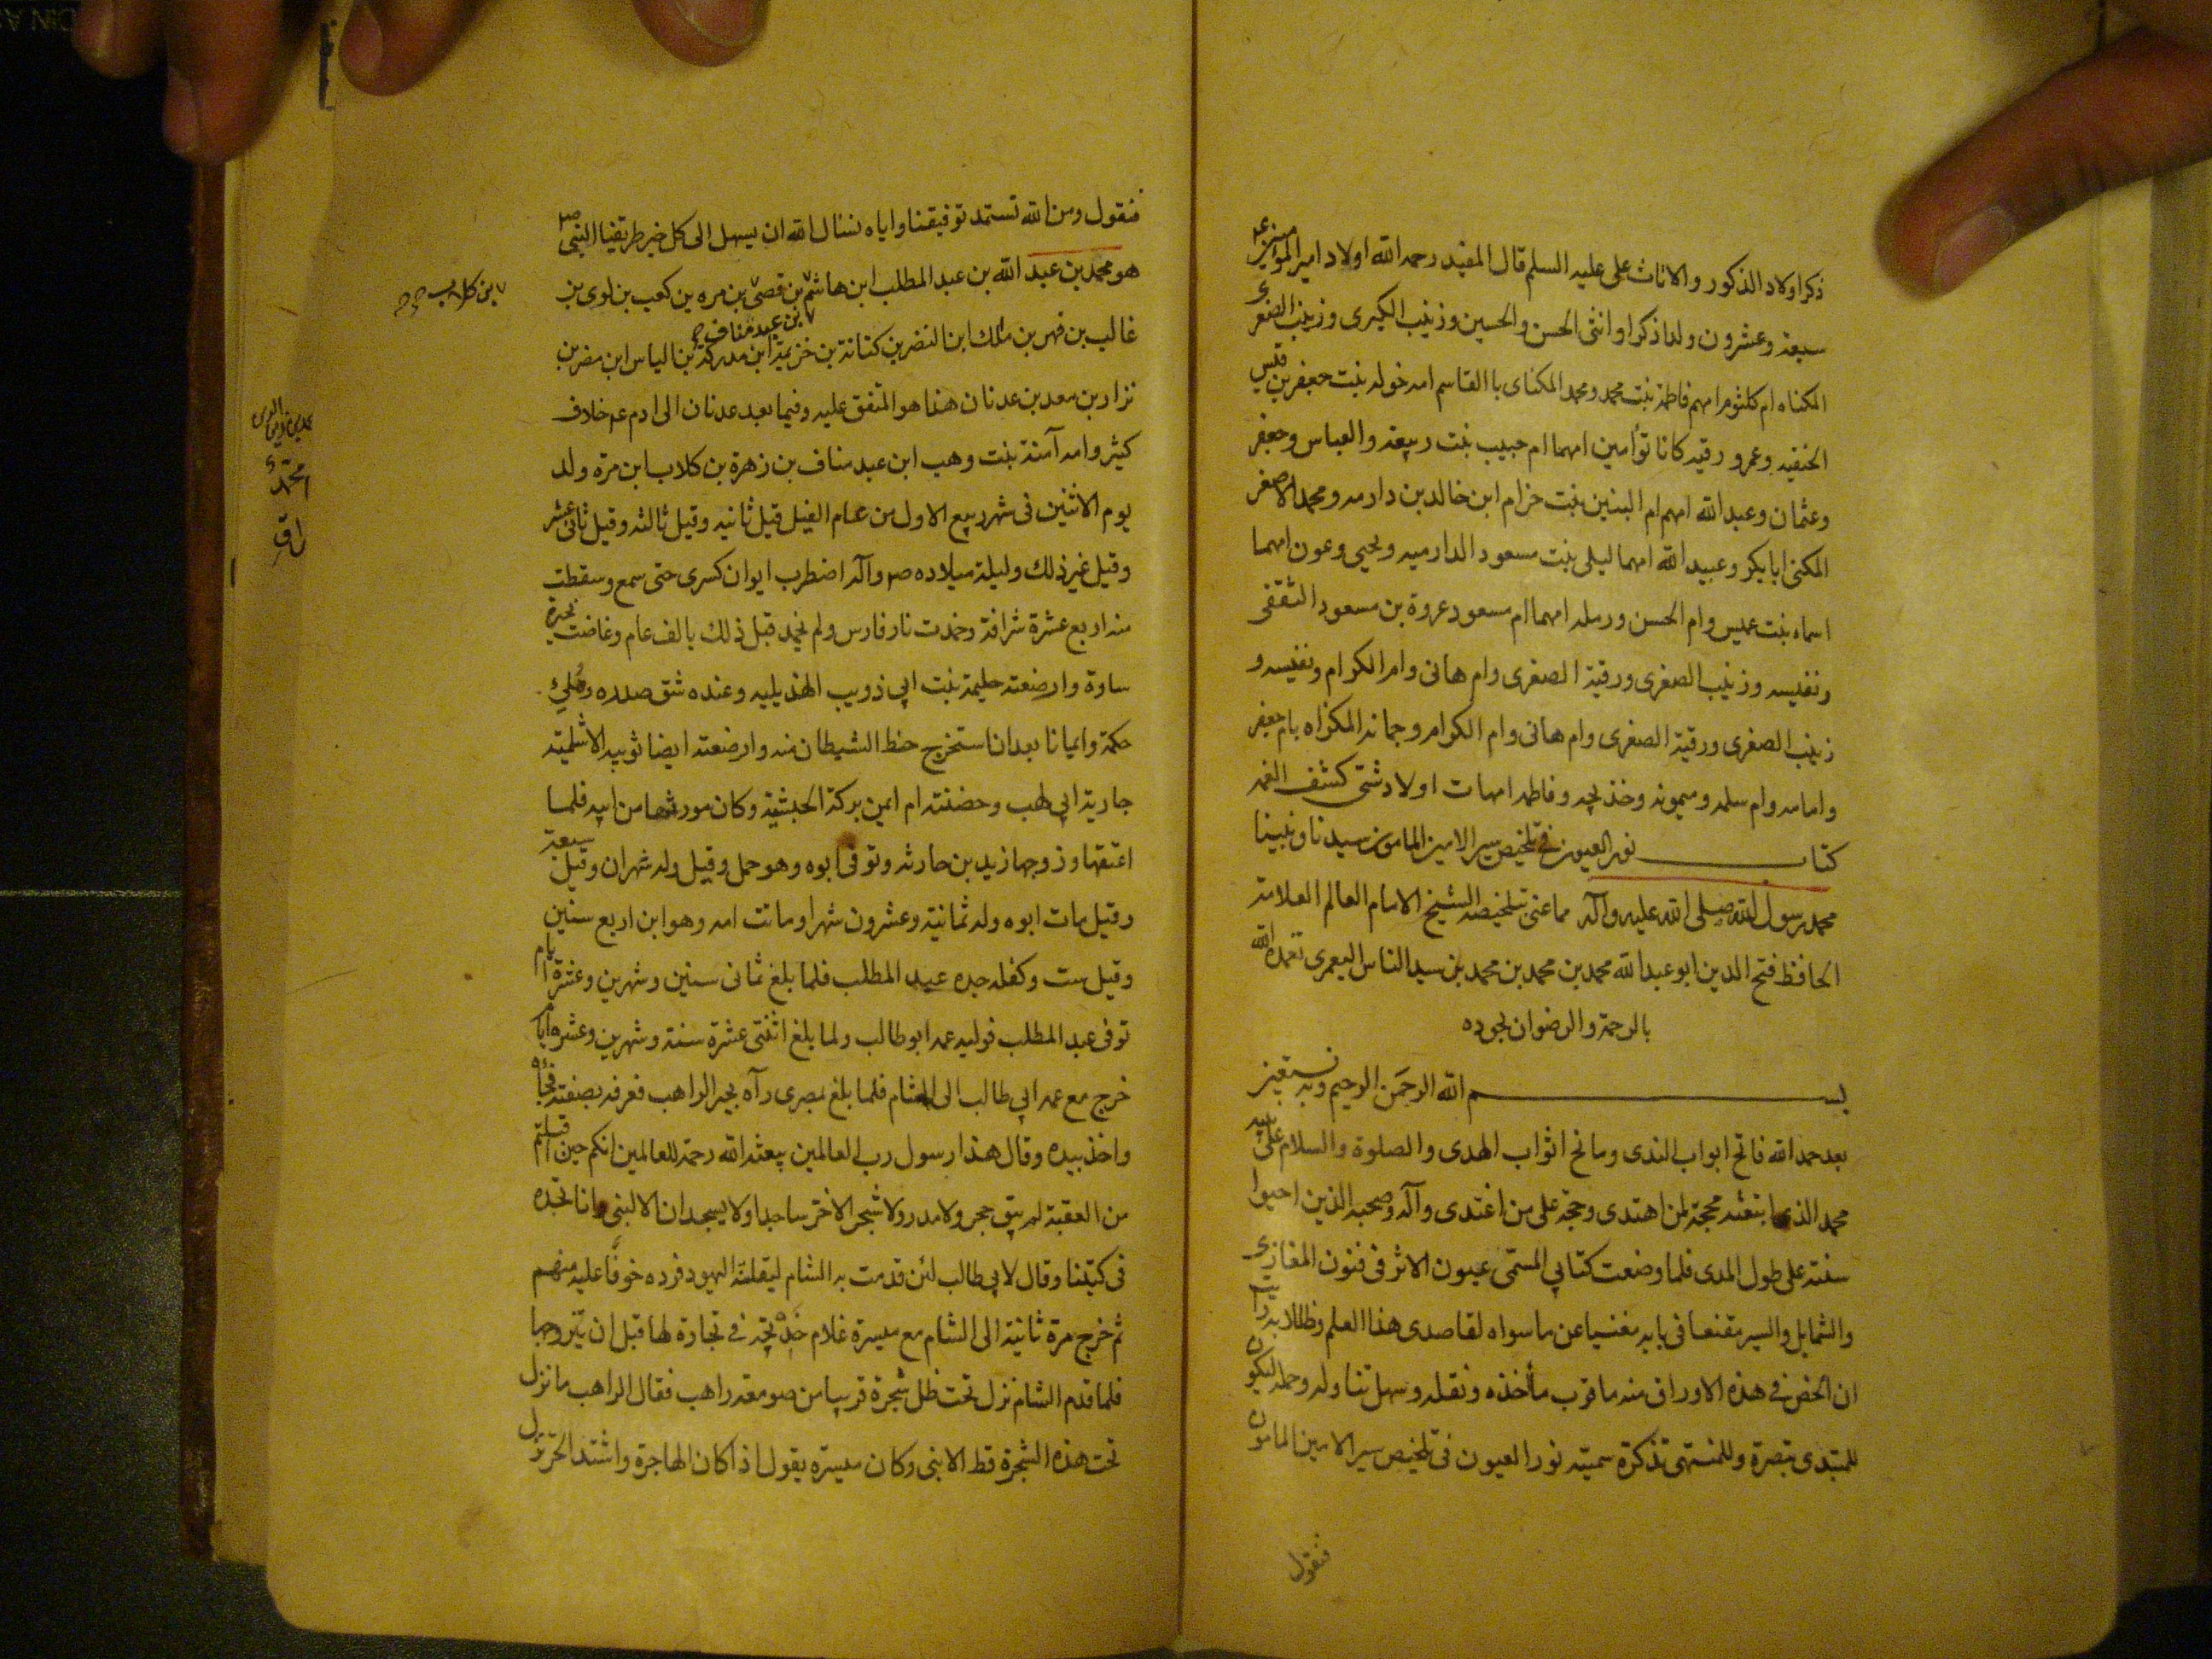 ذكر اولاد الذكور والاناث على عليه السلم قال المفيد رحمه الله اولاد امير المؤمنين ع
سبعة وعشرون ولدا ذكرا وانثى الحسن والحسين وزينب الكبرى وزينب الصغرى
المكناه ام كلثوم امهم فاطمة بنت محمد ومحمد المكناى با القاسم امه خوله بنت جعفر بن قيس
الحنفيه وعمر و رقيه كانا توأمين امهما ام حبيب بنت ربيعة والعباس وجعفر
وعثمان وعبد الله امهم ام البنين بنت حزام ابن خالد بن دارمه ومحمد الاصغر
المكنى ابا بكر وعبيد الله امهما ليلى بنت مسعود الدارميه ويحيى وعون امهما
اسماء بنت عميس وام الحسن ورمله امهما ام مسعود عروة بن مسعود الثقفى
ونفيسه وزينب الصغرى ورقية الصغرى وام هانى وام الكرام ونفيسه و
زينب الصغرى ورقية الصغرى وام هانى وام الكرام وجمانه المكناه بام جعفر
وامامه وام سلمه وميمونه وخذيجه وفاطمه امهات اولاد شتى كشف الغمه
كتاب نور العيون فى تلخيص سير الامين المامون سيدنا ونبينا
محمد رسول الله صلى الله عليه وآله مما عنى تلخيصه الشيخ الامام العالم العلامة
الحافظ فتح الدين ابو عبد الله محمد بن محمد بن محمد بن سيد الناس اليعمرى تغمده الله
بالرحمة والرضوان بجوده
بسم الله الرحمن الرحيم وبه نستعين
بعد حمد الله فاتح ابواب الندى ومانح اثواب الهدى والصلوة والسلام على سيد
محمد الذى ابتعثه محجة لمن اهتدى وحجة على من اعتدى وآله وصحبه الذين احيوا
سنته على طول المدى فلما وضعت كتابي المسمى عيون الاثر فى فنون المغازى
والشمايل والسير مقنعا فى بابه مغنيا عن ما سواه لقاصدى هذا العلم وطلابه رأيت
ان الخص فى هذه الاوراق منه ما قرب مأخذه ونقله وسهل تناوله وحمله ليكون
للمبتدى تبصرة وللمنتهى تذكرة سميته نور العيون فى تلخيص سير الامين المامون
فنقول
فنقول ومن الله نستمد توفيقنا واياه نسئال الله ان يسهل الى كل خير طريقنا النبى ص
هو محمد بن عبد الله بن عبد المطلب ابن هاشم بن قصى بن مره بن كعب بن لوى بن
بن كلاب صح
بن عبد مناف ص
غالب بن فهر بن مالك ابن النضر بن كنانة بن خزيمة ابن مدركة بن الياس ابن مضر بن
نزار بن معد بن عدنان هذا هو المتفق عليه وفيما بعد عدنان الى ادم عم خلاف
كثير وامه آمنة بنت وهب ابن عبد مناف بن زهرة بن كلاب ابن مرة ولد
يوم الاثنين فى شهر ربيع الاول من عام الفيل قيل ثانيه وقيل ثالثه وقيل ثانى عشر
وقيل غير ذلك وليلة ميلاده ص وآله اضطرب ايوان كسرى حتى سمع وسقطت
منه اربع عشرة شرافة وخمدت نار فارس ولم تخمد قبل ذلك بالف عام وغاضت بحيرة
ساوة وارضعته حليمة بنت ابي ذويب الهذيليه وعنده شق صدره وملئ
حكمة وايمانا بعد ان استخرج حظ الشيطان منه وارضعته ايضا ثويبه الاسلمية
جارية ابي لهب وحضنته ام ايمن بركة الحبشية وكان مورثها من ابيه فلما
اعتقها وزوجها زيد بن حارثه وتوفى ابوه وهو حمل وقيل وله شهران وقيل سبعة
وقيل مات ابوه وله ثمانية وعشرون شهرا وماتت امه وهو ابن اربع سنين
وقيل ست وكفله جده عبد المطلب فلما بلغ ثمانى سنين وشهرين وعشرة ايام
توفى عبد المطلب فوليه عمه ابو طالب ولما بلغ اثنتى عشرة سنة وشهرين وعشرة ايام
خرج مع عمه ابي طالب الى الشام فلما بلغ بصرى رآه بحيرا الراهب فعرفه بصفته فجاءه
واخذ بيده وقال هذا رسول رب العالمين يبعثه الله رحمة للعالمين انكم حين اقبلتم
من العقبة لم يبق حجر ولا مدر ولا شجر الا خر ساجدا ولا يسجدان الا لنبى وانا نجده
فى كتبنا وقال لابي طالب لئن قدمت به الشام ليقتلنه اليهود فرده خوفا عليه منهم
ثم خرج مرة ثانية الى الشام مع ميسرة غلام خديجة فى تجارة لها قبل ان يتزوجها
فلما قدم الشام نزل تحت ظل شجرة قريبا من صومعة راهب فقال الراهب ما نزل
تحت هذه الشجرة قط الا نبى وكان ميسرة يقول اذا كان الهاجرة واشتد الحر نزل